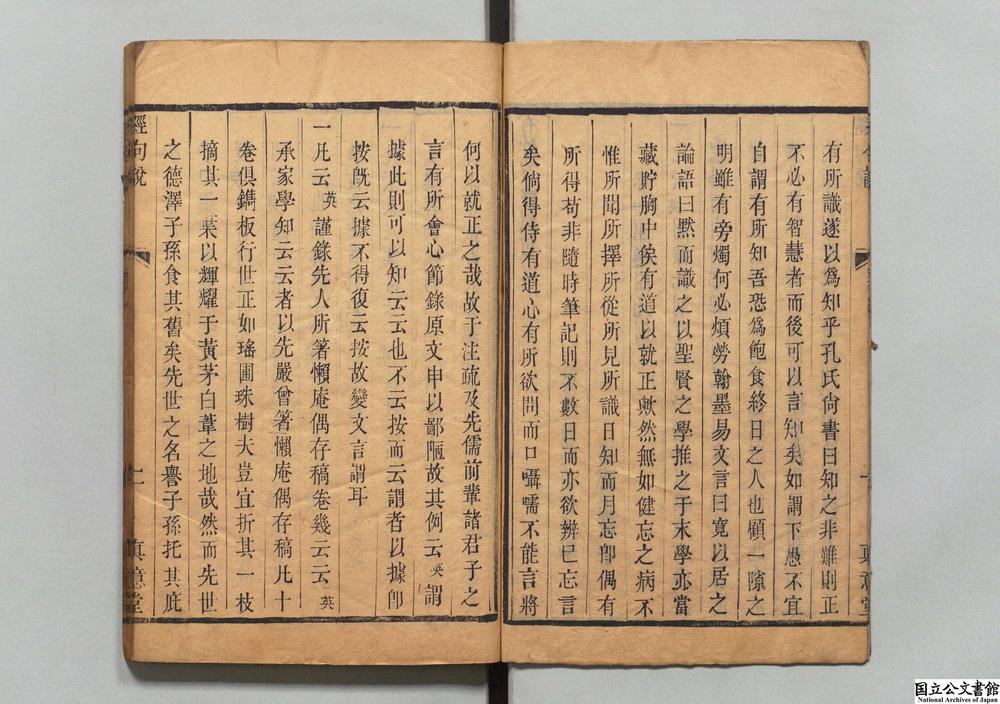 有所識遂以爲知乎孔氏尚書曰知之非難則正
不必有智慧者而後可以言知矣如謂下愚不宜
自謂有所知吾恐爲飽食終日之人也願一隙之
明雖有旁燭何必煩勞翰墨易文言曰寬以居之
論語曰默而識之以聖賢之學推之于末學亦當
藏貯胸中俟有道以就正歟然無如健忘之病不
惟所聞所擇所從所見所識日知而月忘卽偶有
所得苟非隨時筆記則不數日而亦欲辨已忘言
矣倘得侍有道心有所欲問而口囁嚅不能言將
何以就正之哉故于注疏及先儒前輩諸君子之
言有所會心節錄原文申以鄙陋故其例云英謂
據此則可以知云云也不云按而云謂者以據卽
按旣云據不得復云按故變文言謂耳
一凡云英謹錄先人所著懶庵偶存稿卷幾云云英
承家學知云云者以先嚴曾著懶庵偶存稿凡十
卷俱鐫板行世正如瑤圃珠樹夫豈宜折其一枝
摘其一葉以輝耀于黃茅白葦之地哉然而先世
之德澤子孫食其舊矣先世之名譽子孫托其庇
經句說
眞意堂
国立公文書館
National Archives of Japan